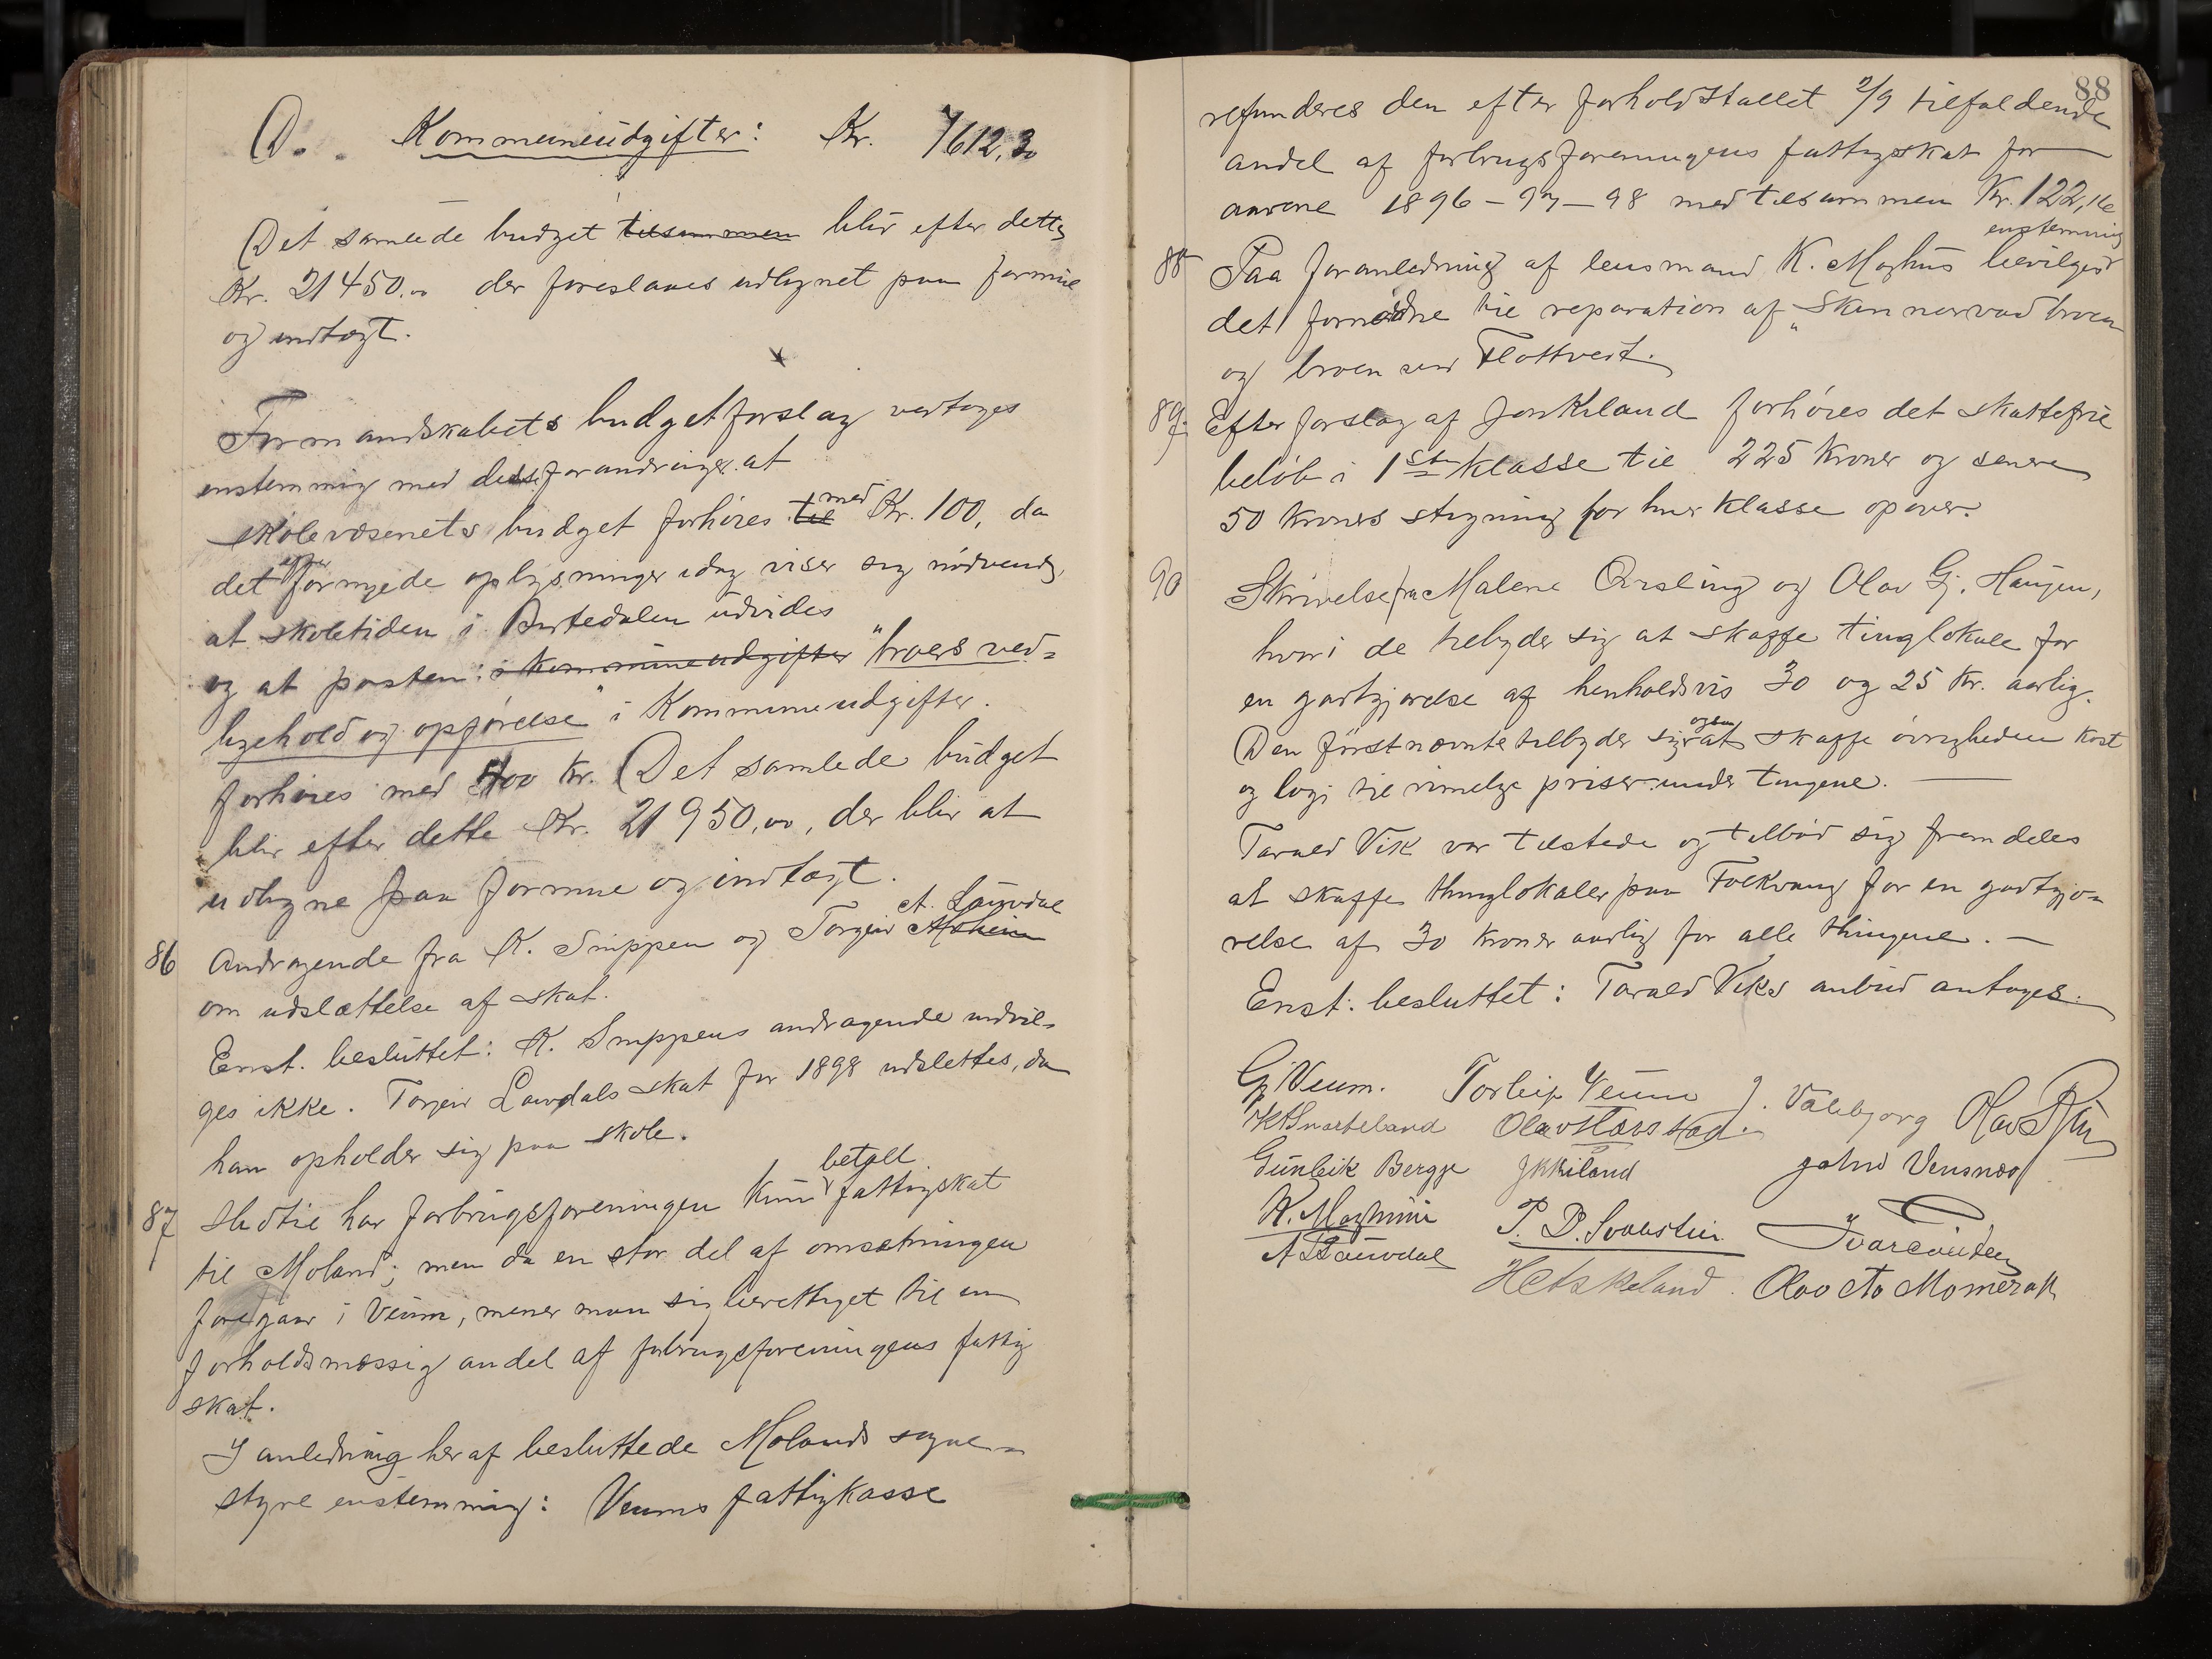 D. Kommuneudgifter: Kr. 7612,30
Det samlede budget tilsammen blir efter dette
Kr. 21450.00 der foreslaaes udlignet paa formue
og indtægt.
Formandskabets budgetforslag vedtages
enstemmig med disse forandringer at
skolevæsenets budget forhöies til med Kr. 100, da
det efter fornyede oplysninger idag viser sig nödvendig,
at skoletiden i Birtedalen udvides
og at posten: i kommuneudgifter "broers ved=
ligehold og opförelse" i Kommuneudgifter.
forhöies med 400 Kr. Det samlede budget
blir efter dette Kr. 21950,00, der blir at
udligne paa formue og indtægt.
86 Andragende fra K. Snippen og Torgeir Moheim A. Lauvdal
om udslættelse af skat.
Enst. besluttet: K. Snippens andragende indvil=
ges ikke. Torgeir Lauvdals skat for 1898 udslettes, da
han opholder sig paa skole.
87 Hidtil har forbrugsforeningen kun betalt fattigskat
til Moland; men da en stor del af omsætningen
foregaar i Veum, mener man sig berettiget til en
forholdsmæssig andel af forbrugsforeningens fattig
skat.
I anledning heraf besluttede Molands sogne=
styre enstemmig: Veums fattigkasse
88
refunderes den efter forholdstallet 2/9 tilfaldende
andel af forbrugsforeningens fattigskat for
aarene 1896-97-98 med tilsammen Kr. 122,16
88 Paa foranledning af lensmand K. Moghus bevilges enstemmig
det fornödne til reparation af "Skinnarvadbroen
og broen ved Flottveit.
89. Efter forslag af Jon Kiland forhöies det skattefrie
belöb i 1ste Klasse til 225 Kroner og senere
50 Kroners stigning for hver Klasse opover.
90 Skrivelse fra Malene Örsling og Olav Gj. Haugen,
hvori de tilbyder sig at skaffe tinglokale for
en godtgjörelse af henholdsvis 30 og 25 Kr. aarlig.
Den förstnævnte tilbyder sig ogsaa at skaffe övrigheden kost
og logi til rimelige priser under tingene.
Tarald Vik var tilstede og tilböd sig fremdeles
at skaffe thinglokaler paa Folkvang for en godtgjö=
relse af 30 kroner aarlig for alle thingene. —
Enst. besluttet: Tarald Viks anbud antages.
Gj Veum. Torleif Veum J. Valebjorg Olav
K H Snarteland Olav Haavstad.
Gunleik Bergje J K Kiland John Vensmoo
K. Moghus P. D.
A Lauvdal
H Eskeland. Olav Momrak